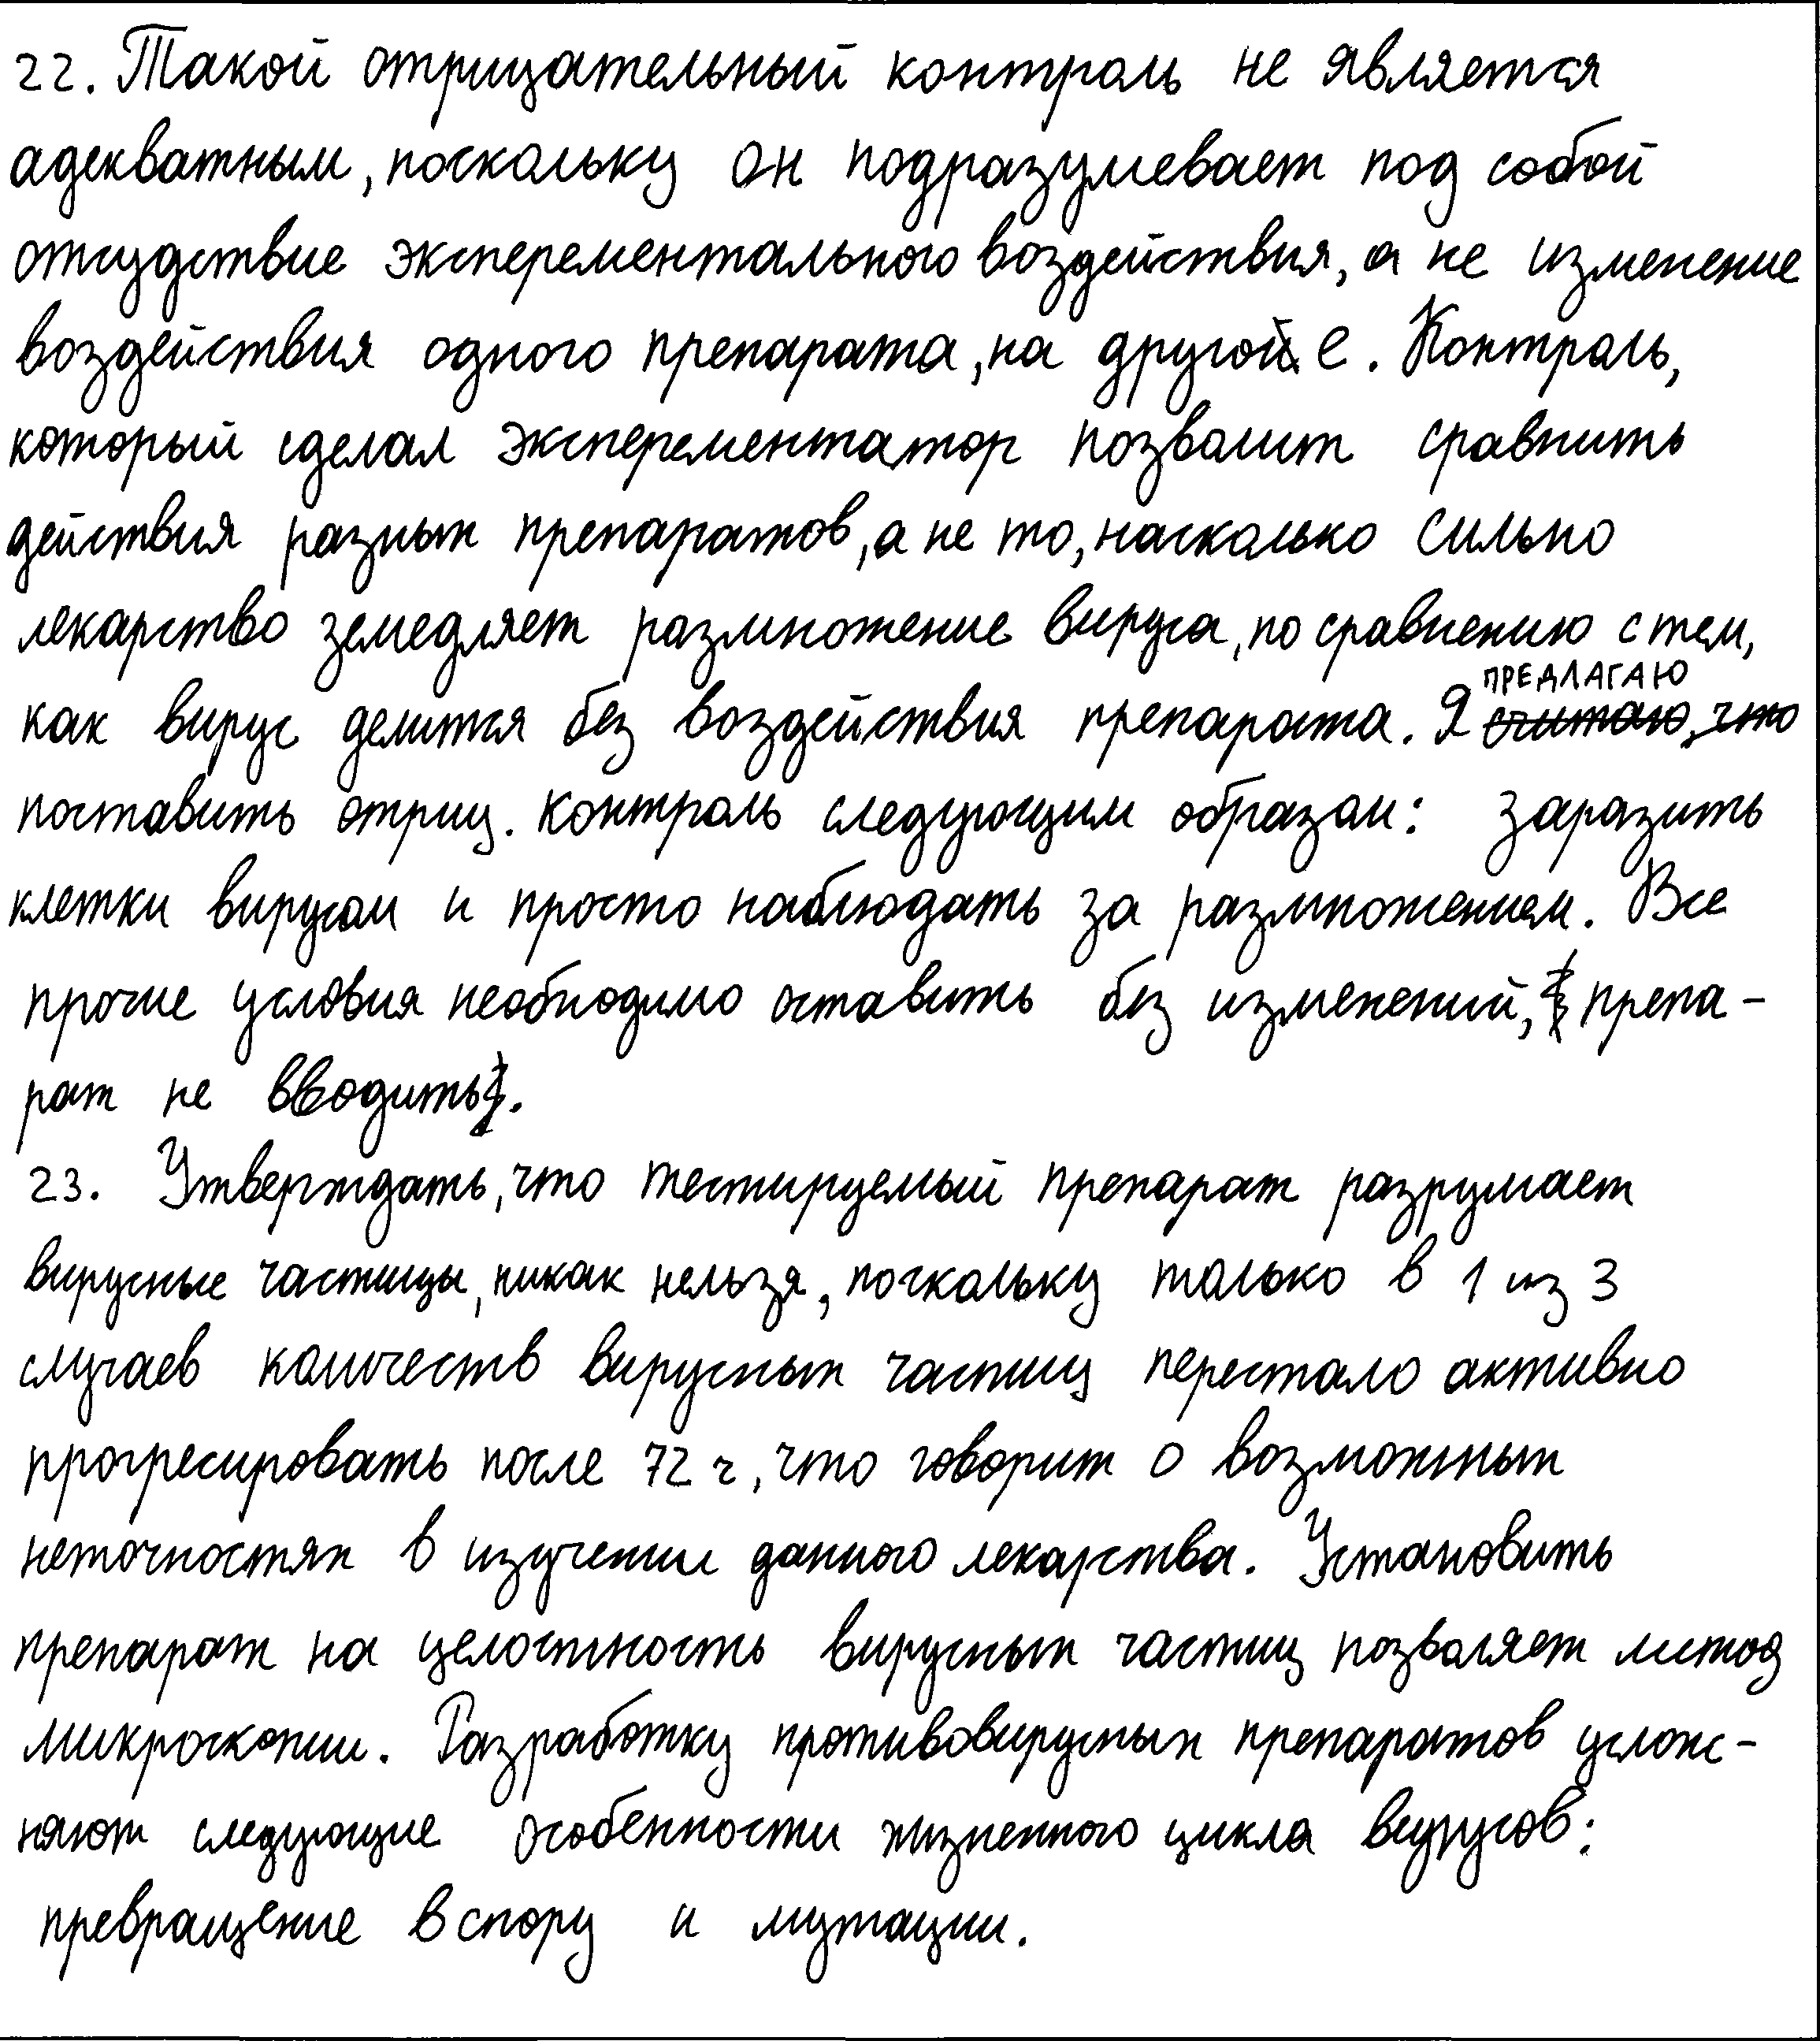 22. Такой отрицательный контроль не является
адекватным, поскольку он подразумевает под собой
отсудствие эксперементального воздействия, а не изменение
воздействия одного препарата, на другое. Контроль,
который сделал эксперементатор позволит сравнить
действия разных препаратов, а не то, насколько сильно
лекарство земедляет размножение вируса, по сравнению с тем,
как вирус делится без воздействия препарата. Я ПРЕДЛАГАЮ
поставить отриц. контроль следующим образом: заразить
клетки вирусом и просто наблюдать за размножением. Все
прочие условия необходимо оставить без изменений, препа-
рат не вводить.
23. Утверждать, что тестируемый препарат разрушает
вирусные частицы, никак нельзя, поскольку только в 1 из 3
случаев количеств вирусных частиц перестало активно
прогресировать после 72 ч, что говорит о возможных
неточностях в изучении данного лекарства. Установить
препарат на целостность вирусных частиц позволяет метод
микроскопии. Разработку противовирусных препаратов услож-
няют следующие особенности жизненного цикла вирусов:
превращение в спору и мутации.